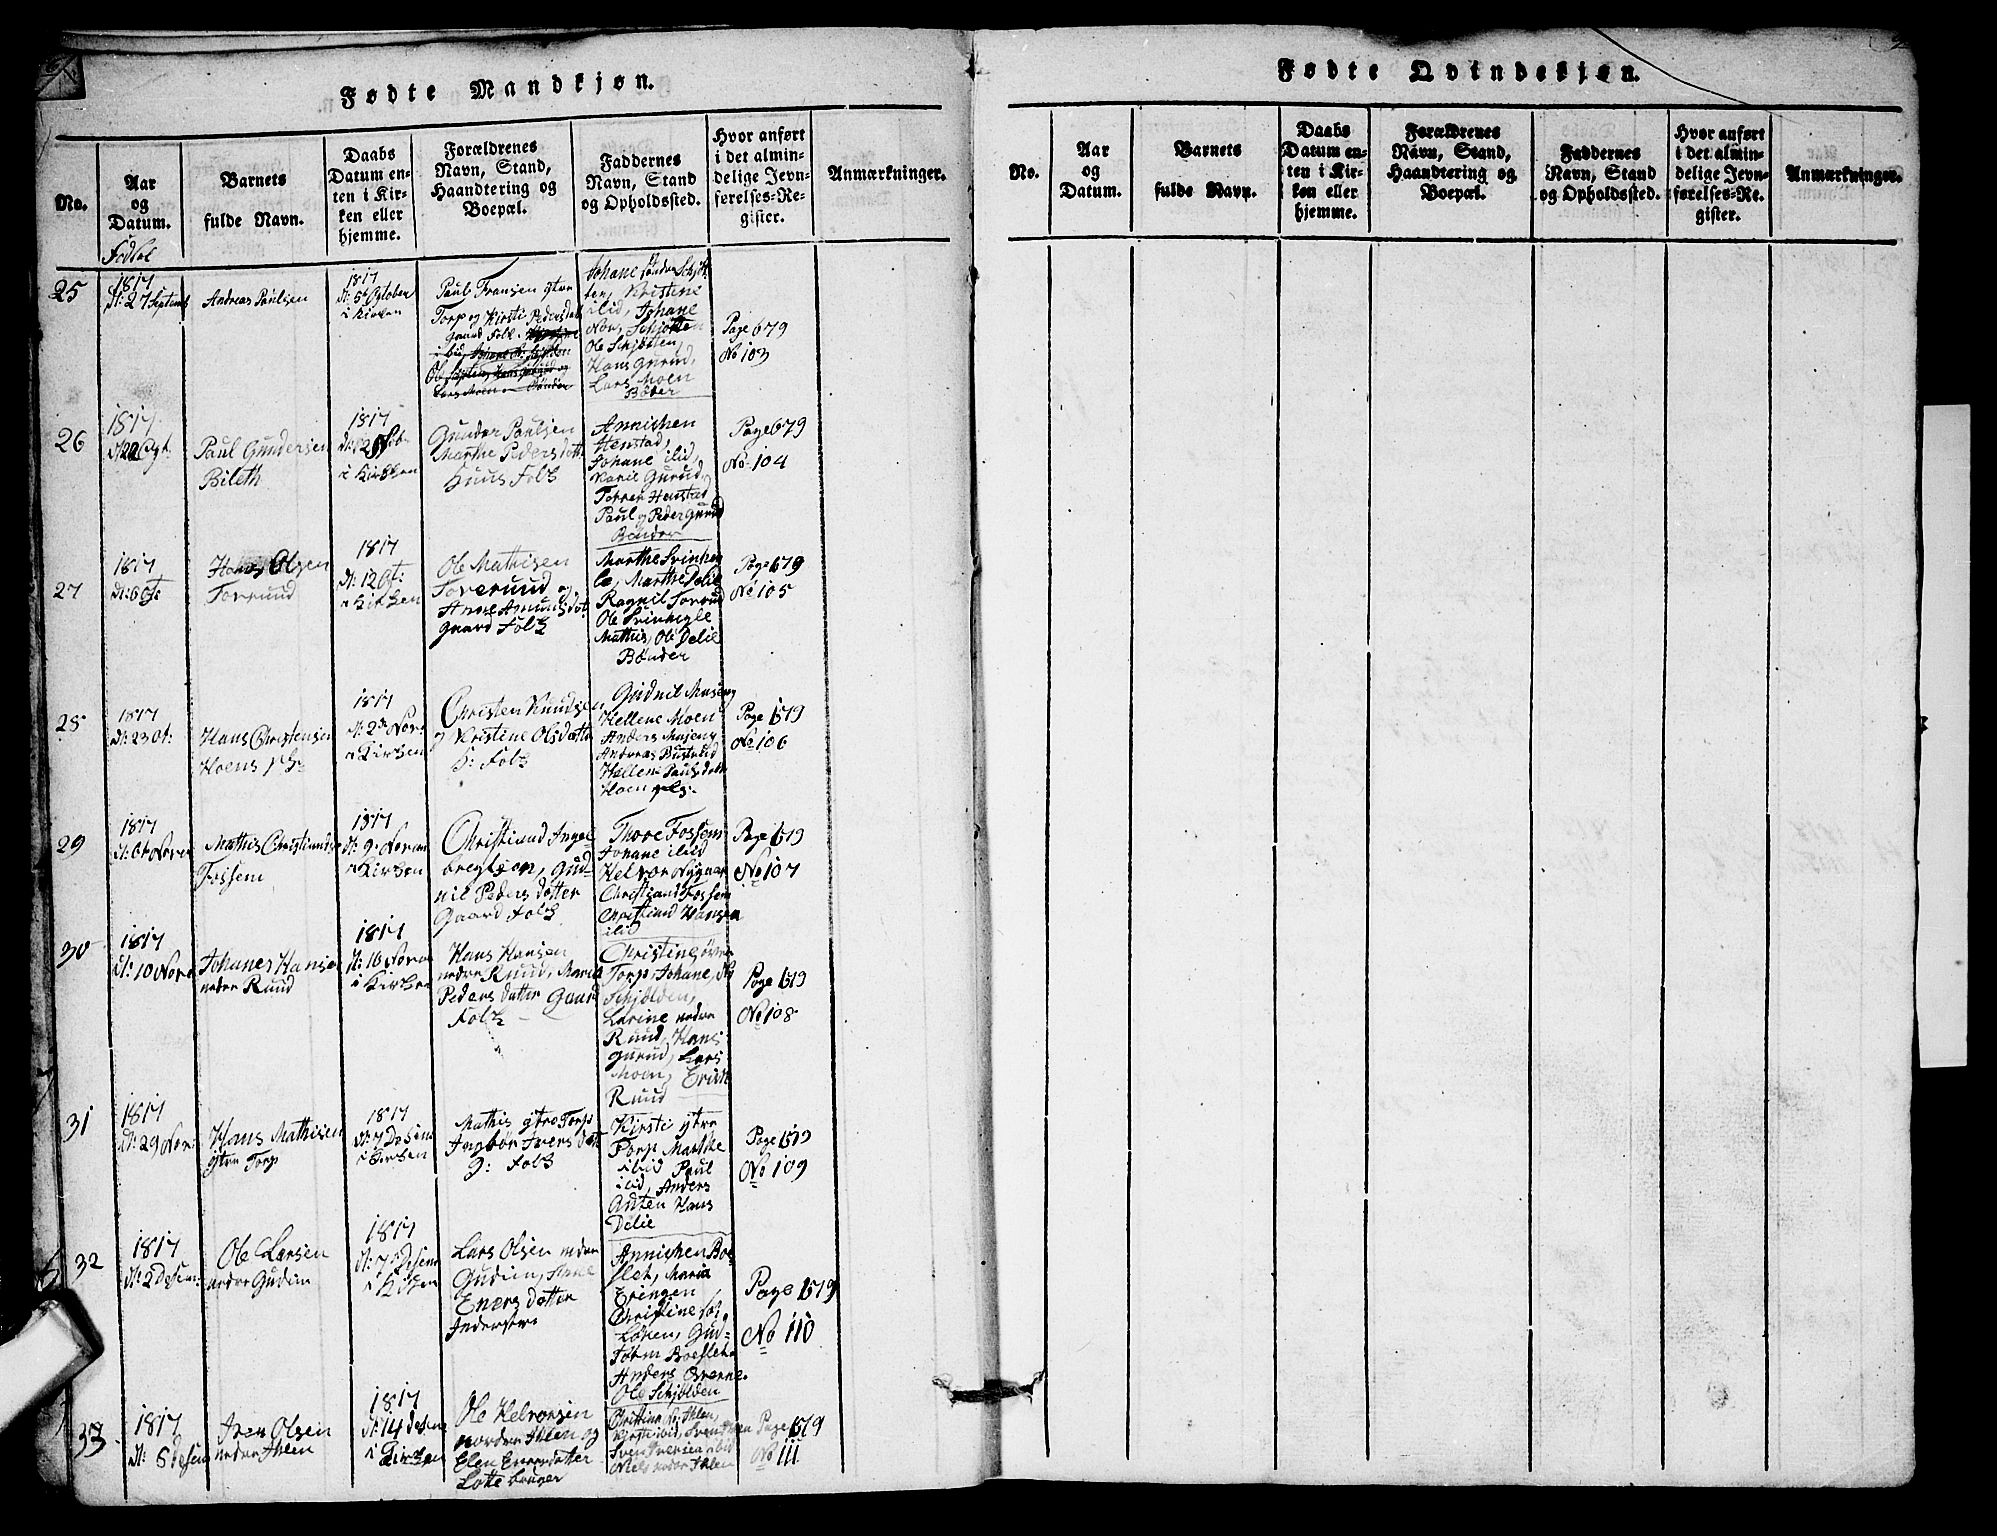 Fødte Mandkjøn.
No.
Aar
og
Datum.
Fødsel
Barnets
fulde Navn.
Daabs
Datum en-
ten i Kir-
ken eller
hjemme.
Forældrenes
Navn, Stand,
Haandtering og
Boepæl.
Faddernes
Navn, Stand
og Opholdssted.
Hvor anført
i det almin-
delige Jevn-
førelses-Re-
gister.
Anmærkninger.
25
1817
d: 27 Septemb
Andreas Paulsen
1817
d: 5t October
i Kirken
Paul Fransen ytre
Torp og Kirsti Pedersdat
gaard Folk.
Johane søndre Schjøt
ten, Kristine
ibid, Johane
Nor: Schjøtten
Ole Schjøtten,
Hans Gurud,
Lars Moen
Bøder
Page 679
No 103
26
1817
Paul Gundersen
Bileth
1817
i Kirken
Gunder Paulsen
Marthe Pedersdatt:
Huus Folk
Annichen
Henstad,
Johane ibid,
Karil Gurud,
Torrer Henstad
Paul og Peder Gurud
Bønder
Page 679
No 104
27
1817
d: 6 Oct:
Olsen
Toverud
1817
d: 12 Oct:
i Kirken
Ole Mathisen
Toverund og
Anne Amundsdat
gaard Folk
Marthe Svinhen
le, Marthe Delie
Ragnil Toverud
Ole Svinhegle
Mathis, Ole Delie
Bønder
Page 679
No 105
28
1817
d: 23 Oct:
Hans Christensen
Hoens
1817
d: 2de Nove
i Kirken
Christen Knudsen
og Kristine Olsdatter
H: Folk
Gudnil Museng
Hellene Moen
Anders Museng
Andreas Bustrud
Hellene Paulsdatter
Hoen
Page 679
No 106
29
1817
d: 6t Novem
Mathis Christiandsen
Fossem
1817
d: 9: Novem
i Kirken
Christiand Ingel
bregtsen, Gud-
nil Peders datter
Gaard Folk
Thore Fossem
Johane ibid
Helvor Nygaar
Christiand Fossem
Christiand Hansen
ibid
Page 679
No 107
30
1817
d: 10 Nove
Johanes Hansen
nedre Ruud
1817
d: 16 Novem
i Kirken
Hans Hansen
nedre Ruud, Maria
Peders datter Gaard
Folk
Christine øvre
Torp, Johane, No
Schjølden,
Larine nedre
Ruud, Hans
Gurud, Lars
Moen, Erich
Ruud
Page 679
No 108
31
1817
d: 29 Nov:
Hans Mathisen
ytre Torp
1817
d: 7 Desem
i Kirken
Mathis ytre Torp
Ingbor Ivers datt
g: Folk
Kirsti ytre
Torp, Marthe
ibid Paul
ibid, Anders
Anten Hans
Delie
Page 679
No 109
32
1817
d: 2 Desem:
Ole Larsen
nedre Gudim
1817
d: 7d Desem
i Kirken
Lars Olsen nedre
Gudim, Anne
Eners datter
Inderster
Annichen Boe
flet, Maria
Eringen
Christine
Løken, Gud-
Boeflet
Anders Overne
Ole Schjølden
Page 679
No 110
33
1817
d: 6 Desem
Iver Olsen
nedre Ihlen
1817
d: 14 Desem
i Kirken
Ole Helvorsen
nordre Ihlen og
Elen Enersdatter
Lotte bruger
Christina No: Ihlen,
Kirsti ibid, Svend
Sven Iversen ibid
Niels nedre Ihlen
Page 679
No 111
Fødte Qvindekjøn.
No.
Aar
og
Datum.
Barnets
fulde Navn.
Daabs
Datum en-
ten i Kir-
ken eller
hjemme.
Forældrenes
Navn, Stand,
Haandtering og
Boepæl.
Faddernes
Navn, Stand
og Opholdssted.
Hvor anført
i det almin-
delige Jevn-
førelses-Re-
gister.
Anmærkninger.